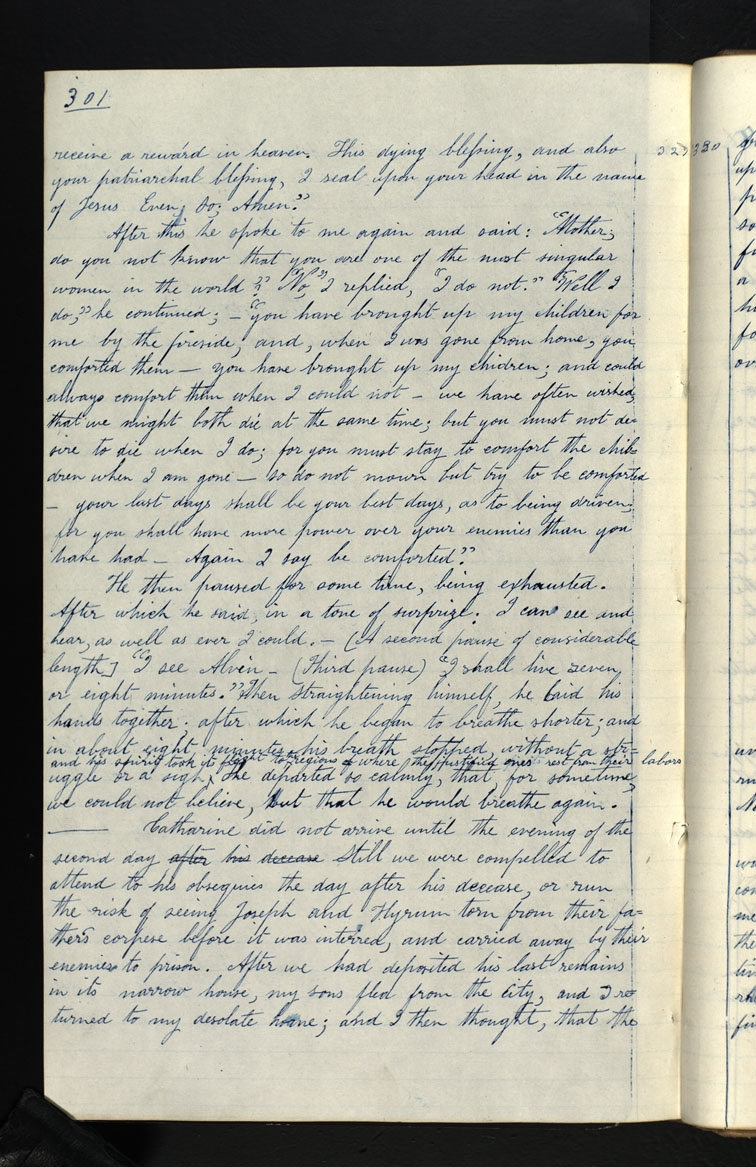 301
receive a reward in heaven. This dying blessing, and also
your patriarchal blessing, I seal upon your head in the name
of Jesus Even, so; Amen."
After this he spoke to me again and said: "Mother;
do you not know that you are one of the most singular
women in the world?" "No," I replied, "I do not." "Well I
do," he continued; — "you have brought up my children for
me by the fireside, and, when I was gone from home, you
comforted them — you have brought up my chidren; and could
always comfort them when I could not — we have often wished,
that we might both die at the same time; but you must not de-
sire to die when I do; for you must stay to comfort the chil-
dren when I am gone — so do not mourn but try to be comforted
— your last days shall be your best days, as to being driven;
for you shall have more power over your enemies than you
have had — Again I say be comforted."
He then paused for some time, being exhausted.
After which he said, in a tone of surprize; I can see and
hear, as well as ever I could. — (A second pause of considerable
length] "I see Alvin — (Third pause) "I shall live seven
or eight minutes." Then straightening himself, he laid his
hands together. after which he began to breathe shorter; and
in about eight minutes his breath stopped, without a str-
and his spirit took its flight to regions where the justified ones rest from their labors
uggle or a sigh, he departed so calmly, that for sometime,
we could not believe, but that he would breathe again.
Catharine did not arrive until the evening of the
second day after his decease Still we were compelled to
attend to his obsequies the day after his decease, or run
the risk of seeing Joseph and Hyrum torn from their fa-
ther's corpese before it was interred, and carried away by their
enemies to prison. After we had deposited his last remains
in its narrow house, my sons fled from the city, and I re-
turned to my desolate home; and I then thought, that the